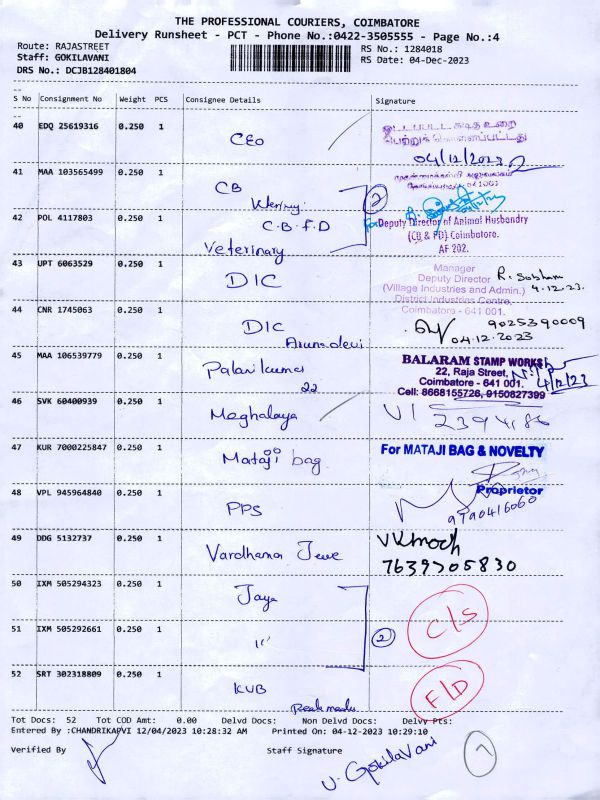 THE PROFESSIONAL COURIERS, COIMBATORE
Delivery Runsheet - PCT - Phone No.:0422-3505555 - Page No.:4
Route: RAJASTREET RS No.: 1284018
Staff: GOKILAVANI RS Date: 04-Dec-2023
DRS No.: DCJB128401804
S No Consignment No Weight PCS Consignee Details Signature
40 EDQ 25619316 0.250 1 CEO
04/12/2023
41 MAA 103565499 0.250 1 CB
42 POL 4117803 0.250 1 C.B.F.D
Veterinary
2
For Deputy Director of Animal Husbandry
(CB & FD) Coimbatore.
AF 202.
43 UPT 6063529 0.250 1 DIC
Manager
Deputy Director
(Village Industries and Admin.) 4.12.23
District Industries Centre,
Coimbatore - 641 001.
44 CNR 1745063 0.250 1 DIC
Arunadevi
9025390009
04.12.2023
45 MAA 106539779 0.250 1 Palanikumar
22
BALARAM STAMP WORKS
22, Raja Street,
Coimbatore - 641 001.
4/12/23
Cell: 8668155726, 9150827399
46 SVK 60400939 0.250 1 Meghalaya
47 KUR 7000225847 0.250 1 Mataji bag
For MATAJI BAG & NOVELTY
Proprietor
48 VPL 945964840 0.250 1 PPS
9790416060
49 DDG 5132737 0.250 1 Vardhaman Jewe
7639705830
50 IXM 505294323 0.250 1 Jaya
51 IXM 505292661 0.250 1 "
2
C/S
52 SRT 302318809 0.250 1 KVB
F/D
Tot Docs: 52 Tot COD Amt: 0.00 Delvd Docs: Non Delvd Docs: Delvy Pts:
Entered By :CHANDRIKAPVI 12/04/2023 10:28:32 AM Printed On: 04-12-2023 10:29:10
Verified By Staff Signature
V. GokilaVani